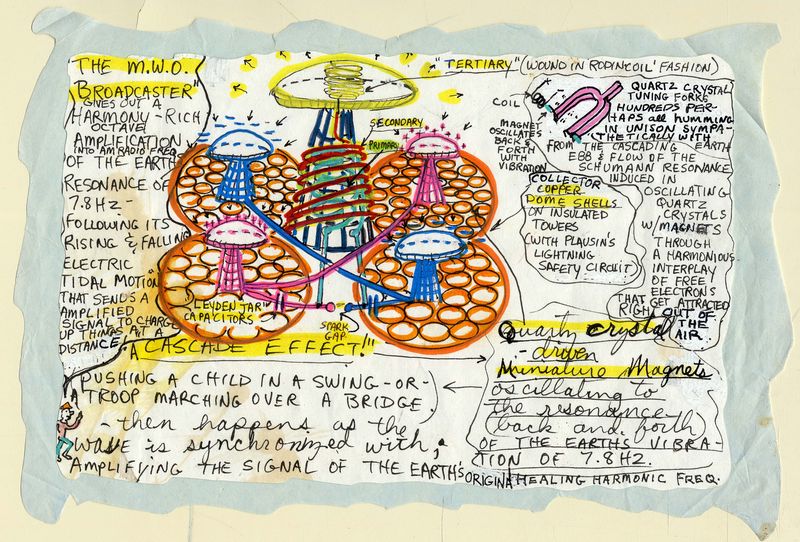 THE M.W.O.
BROADCASTER"
GIVES OUT A
HARMONY-RICH
OCTAVE
AMPLIFICATION
INTO AM RADIO FREQ.
OF THE EARTHS
RESONANCE OF
7.8HZ-
FOLLOWING ITS
RISING & FALLING
ELECTRIC
TIDAL MOTION"
THAT SENDS A
AMPLIFIED
SIGNAL TO CHARGE
UP THINGS AT A
DISTANCE,
"A CASCADE EFFECT!"
"TERTIARY" (WOUND IN RODINCOIL' FASHION)
SECONDARY
PRIMARY
"LEYDEN JAR"
CAPACITORS
SPARK
GAP
COIL
MAGNET
OSCILLATES
BACK &
FORTH
WITH
VIBRATION
QUARTZ CRYSTAL
TUNING FORKS
HUNDREDS PER-
HAPS all HUMMING
IN UNISON SYMPA-
THETICALLY WITH
FROM THE CASCADING EARTH
EBB & FLOW OF THE
SCHUMANN RESONANCE
INDUCED IN
OSCILLATING
QUARTZ
CRYSTALS
W/MAGNETS
THROUGH
A HARMONIOUS
INTERPLAY
OF FREE
ELECTRONS
THAT GET ATTRACTED
RIGHT OUT OF
THE
AIR.
COLLECTOR
COPPER
DOME SHELLS
ON INSULATED
TOWERS
(WITH PLAUSIN'S
LIGHTNING
SAFETY CIRCUIT
Quartz crystal
-driven
Miniature Magnets
oscillating to
the resonance
(back and forth
OF THE EARTHS VIBRA-
TION OF 7.8HZ.
PUSHING A CHILD IN A SWING-OR-
TROOP MARCHING OVER A BRIDGE.
-then happens as the
wave is synchronized with,
AMPLIFYING THE SIGNAL OF THE EARTH'S ORIGINAL HEALING HARMONIC FREQ.